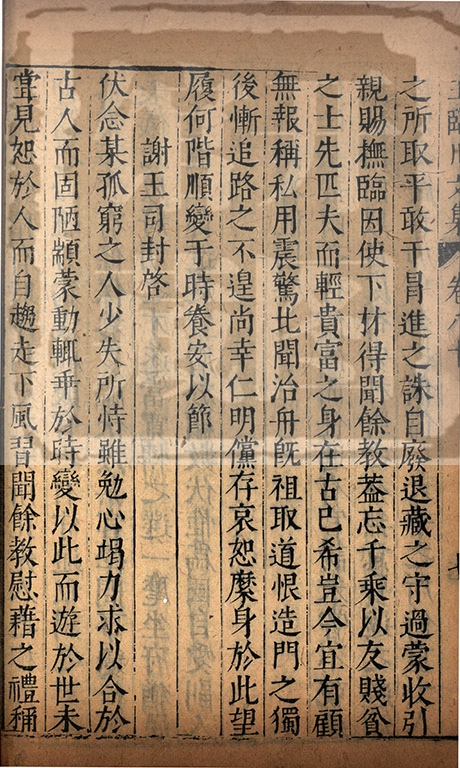 臨川文集 卷八十 七
之所取平敢干冒進之誅自廢退藏之守過蒙收引
親賜撫臨因使下材得聞餘教葢忘千乘以友賤貧
之士先匹夫而輕貴富之身在古已希豈今宜有顧
無報稱私用震驚比聞治舟旣祖取道恨造門之獨
後慚追路之不遑尚幸仁明儻存哀恕縻身於此望
履何階順變于時養安以節
謝王司封啓
伏念某孤窮之人少失所恃雖勉心竭力求以合於
古人而固陋顓蒙動輒乖於時變以此而遊於世未
甞見恕於人而自趨走下風習聞餘教慰藉之禮稱